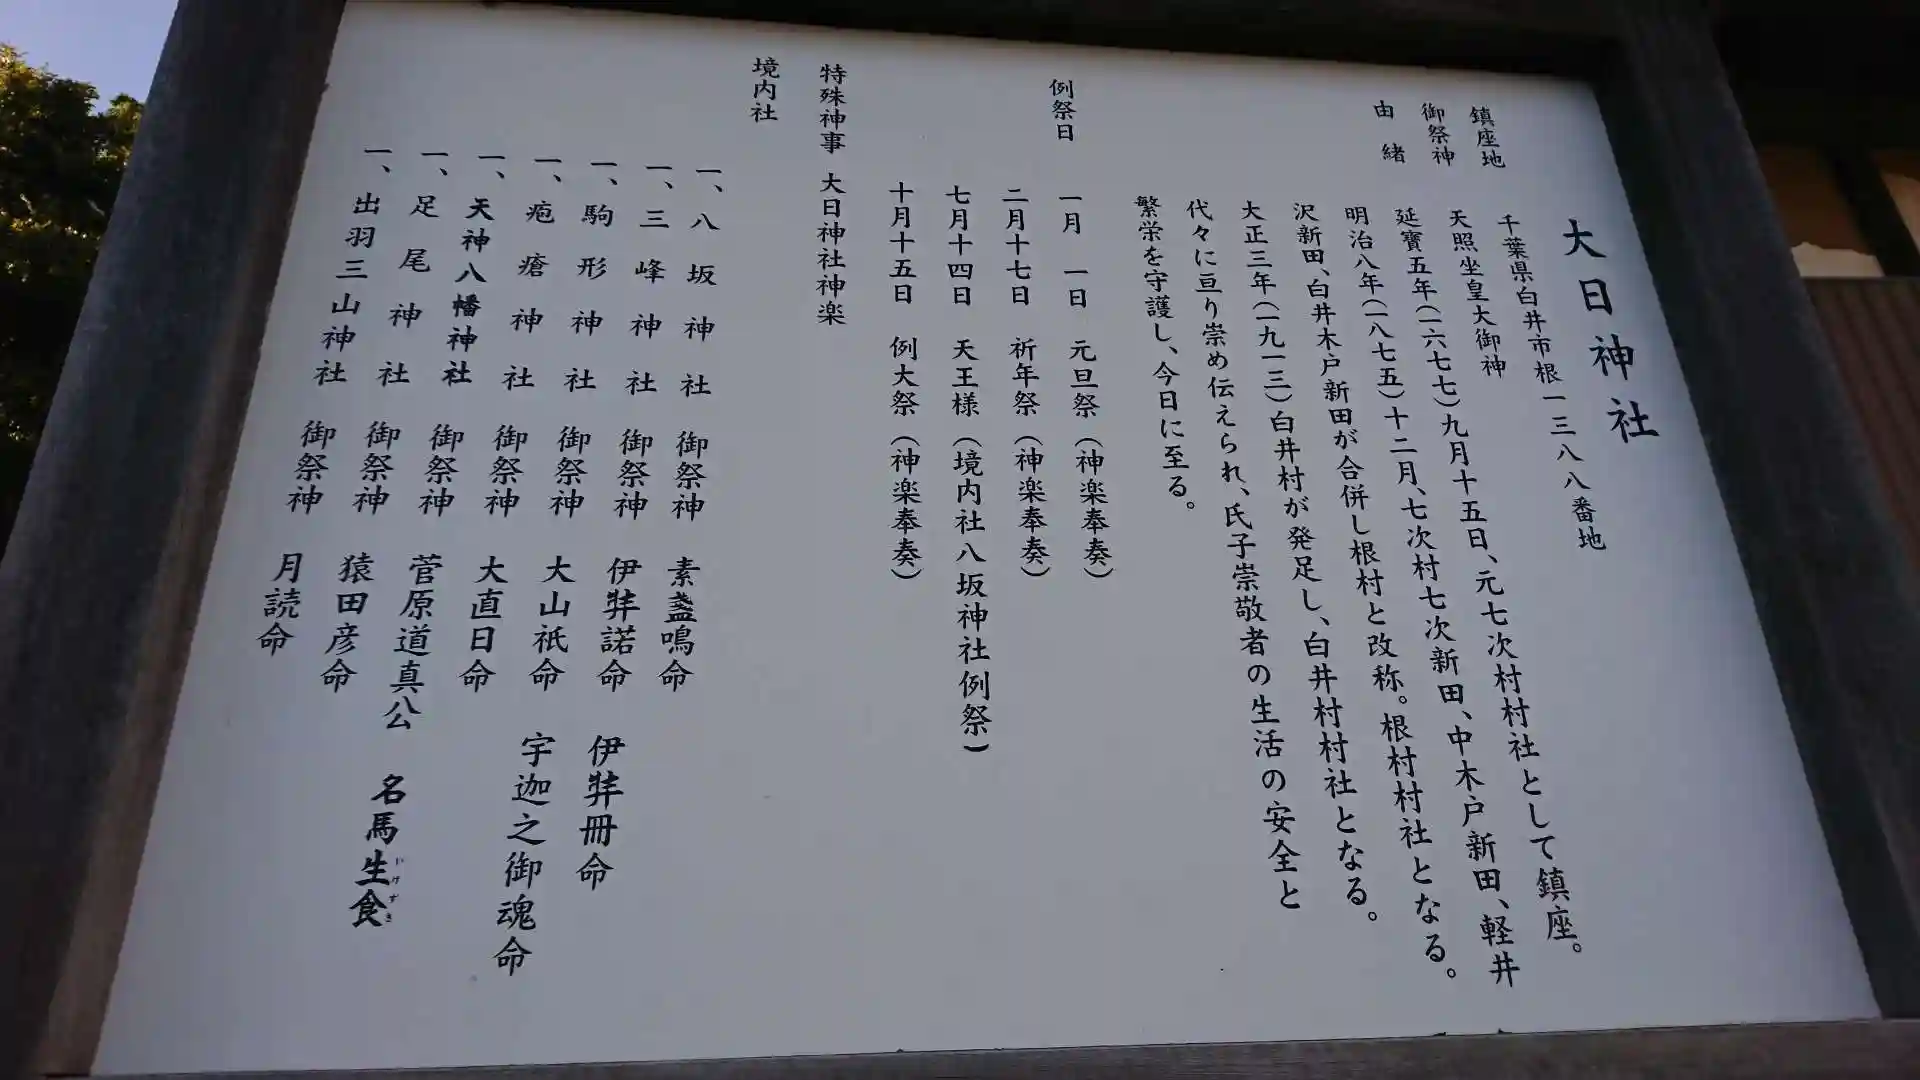 大日神社
鎮座地 千葉県白井市根一三八八番地
御祭神 天照坐皇大御神
由緒 延寶五年(一六七七)九月十五日、元七次村村社として鎮座。
明治八年(一八七五)十二月、七次村七次新田、中木戸新田、軽井
沢新田、白井木戸新田が合併し根村と改称。根村村社となる。
大正三年(一九一三)白井村が発足し、白井村村社となる。
代々に亘り崇め伝えられ、氏子崇敬者の生活の安全と
繁栄を守護し、今日に至る。
例祭日 一月 一日 元旦祭(神楽奉奏)
二月十七日 祈年祭(神楽奉奏)
七月十四日 天王様(境内社八坂神社例祭)
十月十五日 例大祭(神楽奉奏)
特殊神事 大日神社神楽
境内社
一、八坂神社 御祭神 素盞鳴命
一、三峰神社 御祭神 伊弉諾命 伊弉冊命
一、駒形神社 御祭神 大山祇命 宇迦之御魂命
一、疱瘡神社 御祭神 大直日命
一、天神八幡神社 御祭神 菅原道真公 名馬生食
いけずき
一、足尾神社 御祭神 猿田彦命
一、出羽三山神社 御祭神 月読命